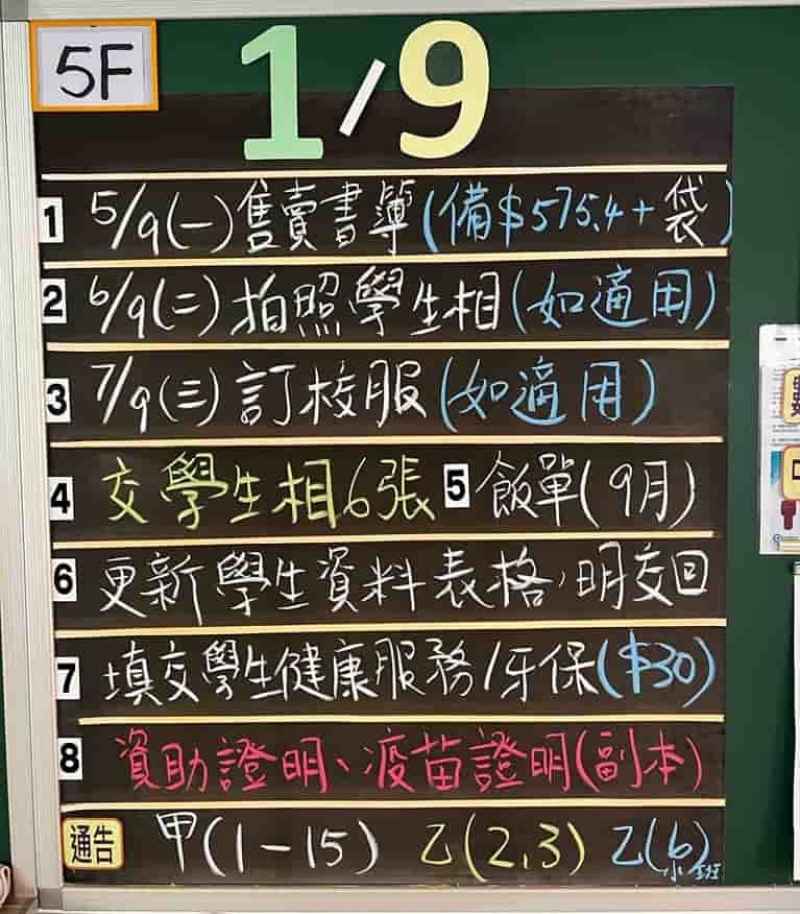 5F
1/9
1 5/9(一)售賣書簿(備$575.4+袋)
2 6/9(二)拍照學生相(如適用)
3 7/9(三)訂校服(如適用)
4 交學生相6張 5 飯單(9月)
6 更新學生資料表格,明交回
7 填交學生健康服務/牙保($30)
8 資助證明、疫苗證明(副本)
通告 甲(1-15) 乙(2,3) 乙(6)